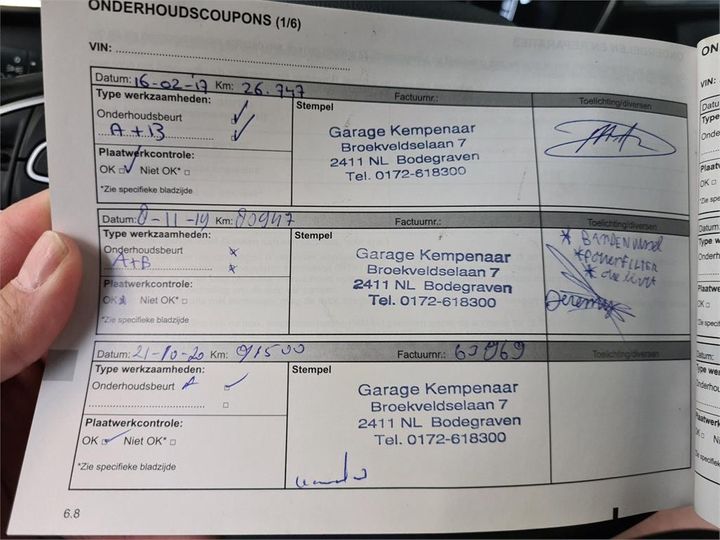 ONDERHOUDSCOUPONS (1/6)
VIN:
Datum: 16-02-'17 Km: 26.747 Factuurnr.: Toelichting/diversen
Type werkzaamheden:
Onderhoudsbeurt
A+B
Plaatwerkcontrole:
OK Niet OK*
*Zie specifieke bladzijde
Stempel
Garage Kempenaar
Broekveldselaan 7
2411 NL Bodegraven
Tel. 0172-618300
Datum: 8-11-19 Km: 80947 Factuurnr.: Toelichting/diversen
Type werkzaamheden:
Onderhoudsbeurt
A+B
Plaatwerkcontrole:
OK Niet OK*
*Zie specifieke bladzijde
Stempel
Garage Kempenaar
Broekveldselaan 7
2411 NL Bodegraven
Tel. 0172-618300
* BANDENWISSEL
* POLLENFILTER
Jeremy
Datum: 21-10-20 Km: 91500 Factuurnr.: 63969 Toelichting/diversen
Type werkzaamheden:
Onderhoudsbeurt A
Plaatwerkcontrole:
OK Niet OK*
*Zie specifieke bladzijde
Stempel
Garage Kempenaar
Broekveldselaan 7
2411 NL Bodegraven
Tel. 0172-618300
6.8
ON
VIN: